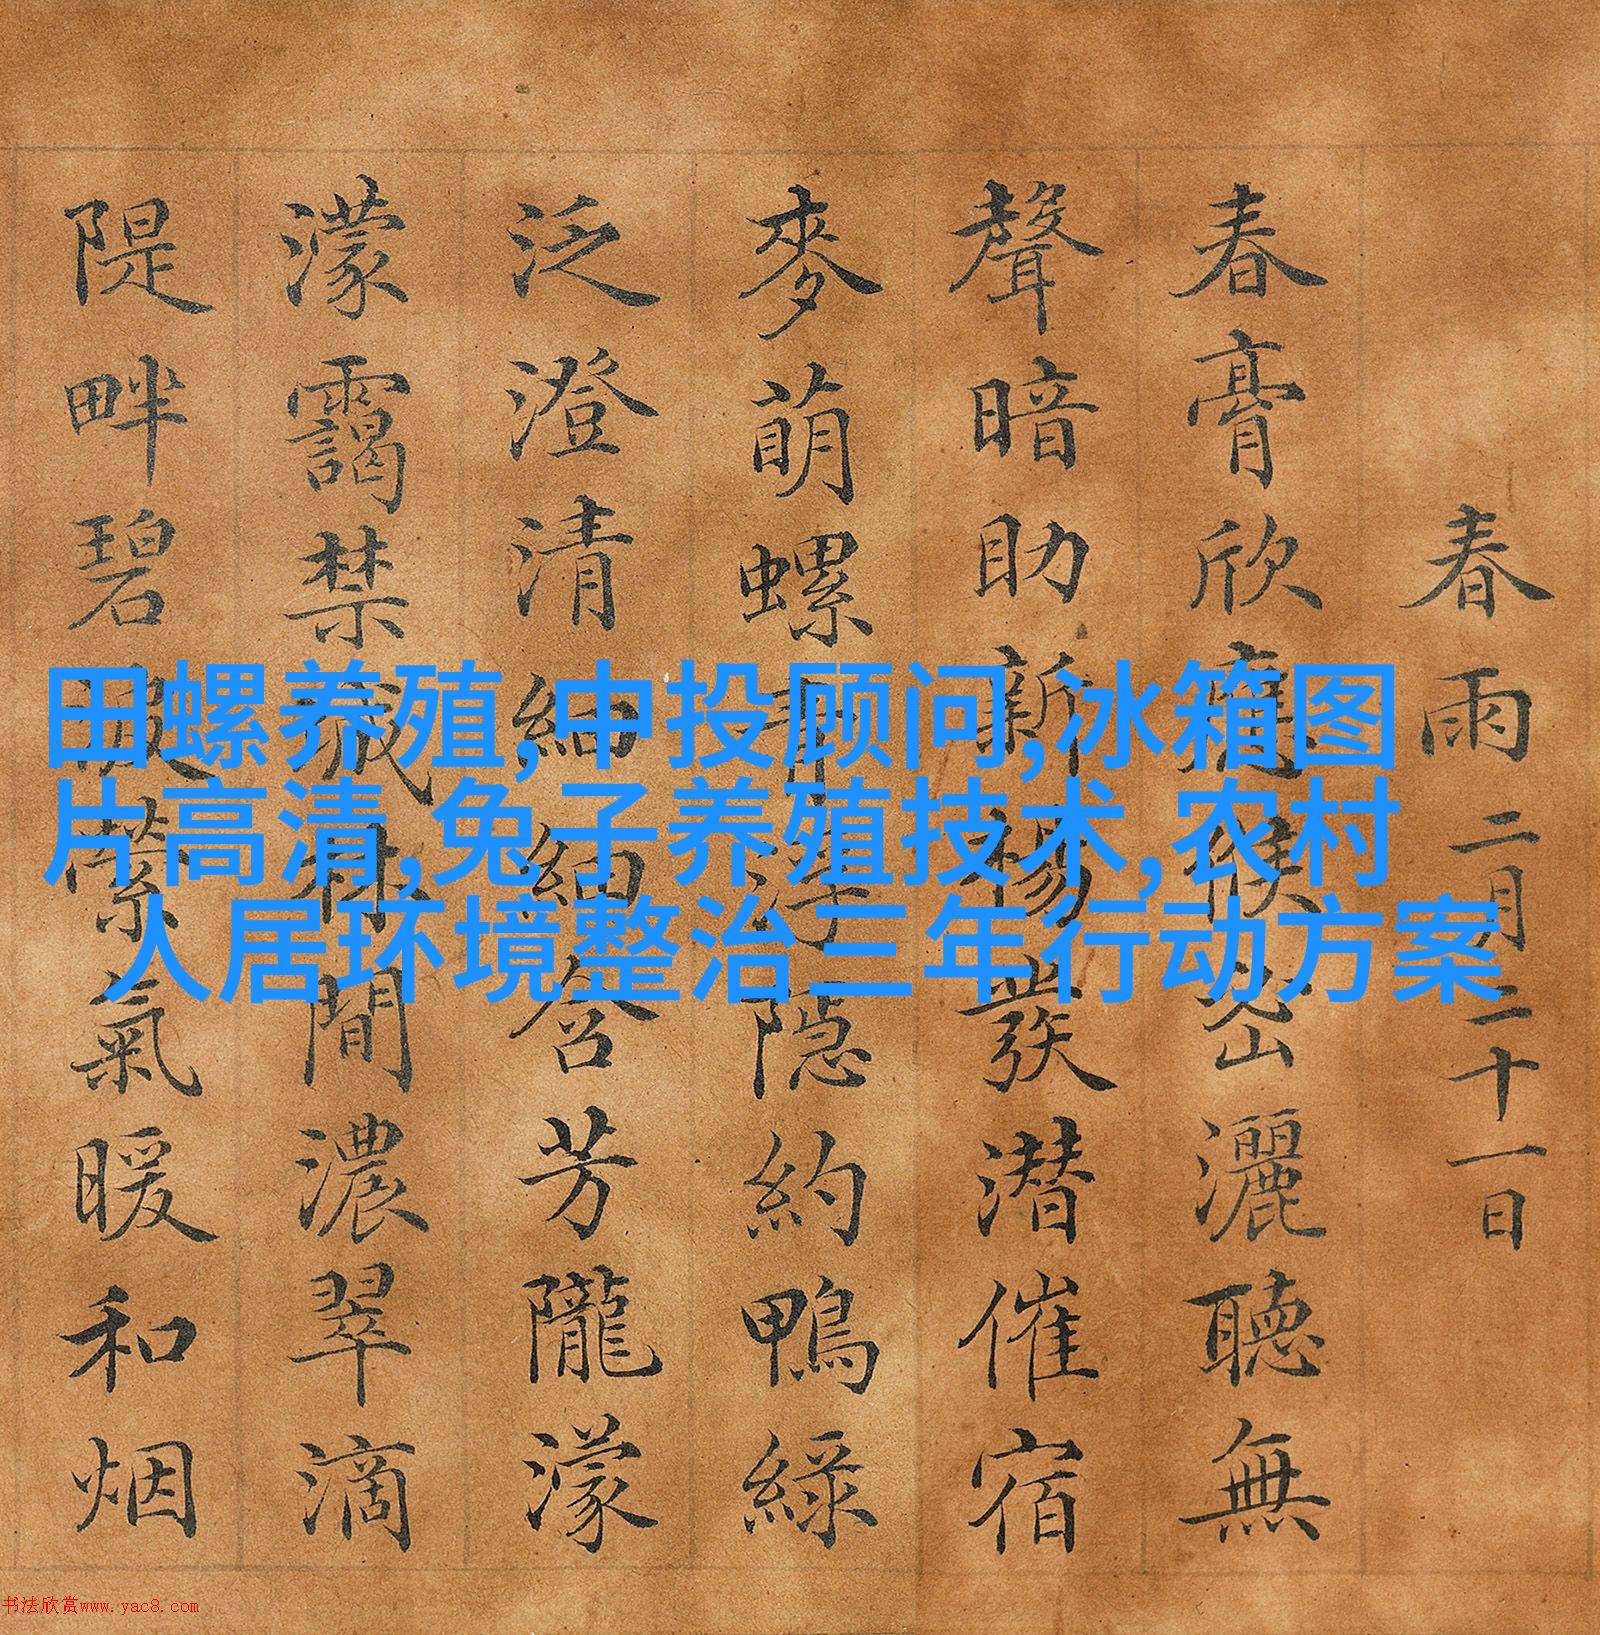 春雨 二月二十一日
春膏欣應候密灑聽無
聲暗助新楊發潜催宿
麥萌螺青浮隐約鴨綠
泛澄清細細含芳隴濛
濛靄禁城林間濃翠滴
隄畔碧波縈氣暖和烟
田螺养殖,中投顾问,冰箱图
片高清,兔子养殖技术,农村
人居环境整治三年行动方案
书法欣赏www.yac8.com